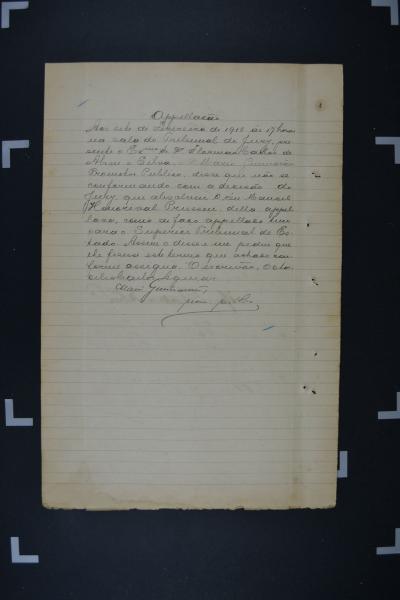 Appellação
Aos sete de Fevereiro de 1918 às 17 horas
na sala do Tribunal do Jury, pre
sente o Exmo Sr. Dr. Florma Mattos de
Abreu e Silva Mario Guimarães
Promotor Publico, disse que não se
conformando com a decisão do
Jury que absolveu o réu Manoel
della appel
lava, como de facto appellado tem
para o Superior Tribunal do Es
tado. Assim o disse e me pediu que
lhe fizesse este termo que achado con
forme assigna. O escrivão,
Aguiar
Mario Guimarães